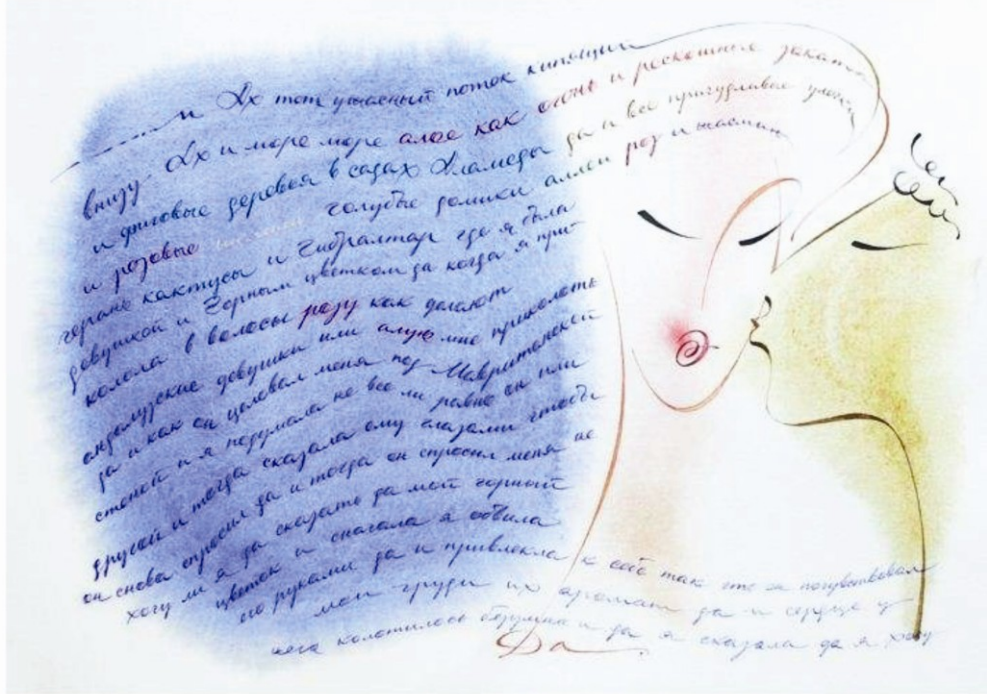 и Ах тот ужасный поток кипящий
внизу Ах и море море алое как огонь и роскошные закаты
и фиговые деревья в садах Аламеды да и все причудливые улочки
и розовые голубые домики аллеи роз и жасмин
герань кактусы и Гибралтар где я была
девушкой и Горным цветком да когда я при-
колола в волосы розу как делают
андалузские девушки или алую мне приколоть
да и как он целовал меня под Мавританской
стеной и я подумала не все ли равно он или
другой и тогда сказала ему глазами чтобы
он снова спросил да и тогда он спросил меня не
хочу ли я да сказать да мой горный
цветок и сначала я обвила
его руками да и привлекла к себе так что он почувствовал
мои груди их аромат да и сердце у
него колотилось безумно и да я сказала да я хочу
Да